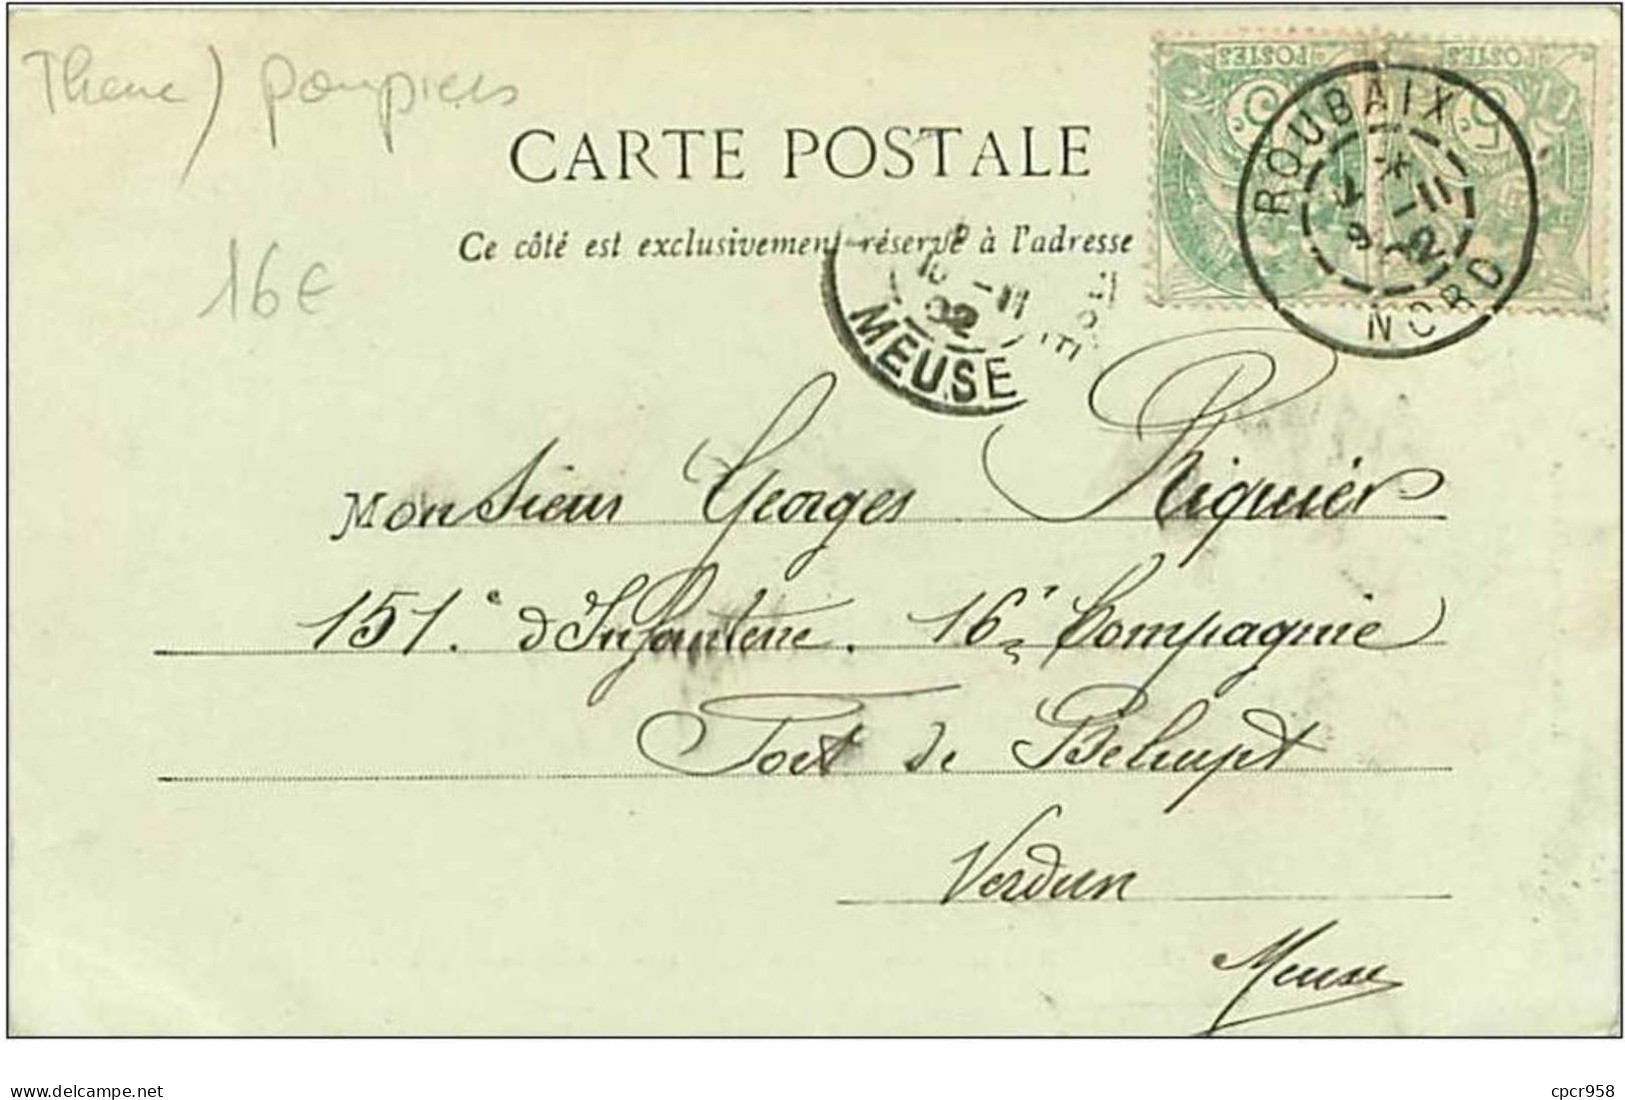 Theme) pompiers
CARTE POSTALE
Ce côté est exclusivement réservé à l'adresse
16€
POSTES
5c.
POSTES
5c.
ROUBAIX
11
02
NORD
-11
02
MEUSE
Monsieur Georges Riquier
151.e d'Infanterie. 16e Compagnie
Fort de Belrupt
Verdun
Meuse
www.delcampe.net
cpcr958